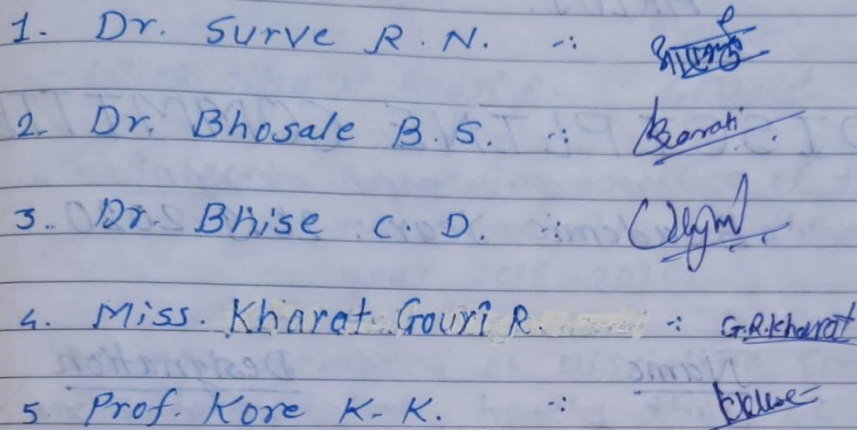 1. Dr. Surve R. N. -:
2. Dr. Bhosale B. S. -:
3. Dr. Bhise C. D. -:
4. Miss. Kharat Gouri R. -: G.R.Kharat
5 Prof. Kore K. K. -: